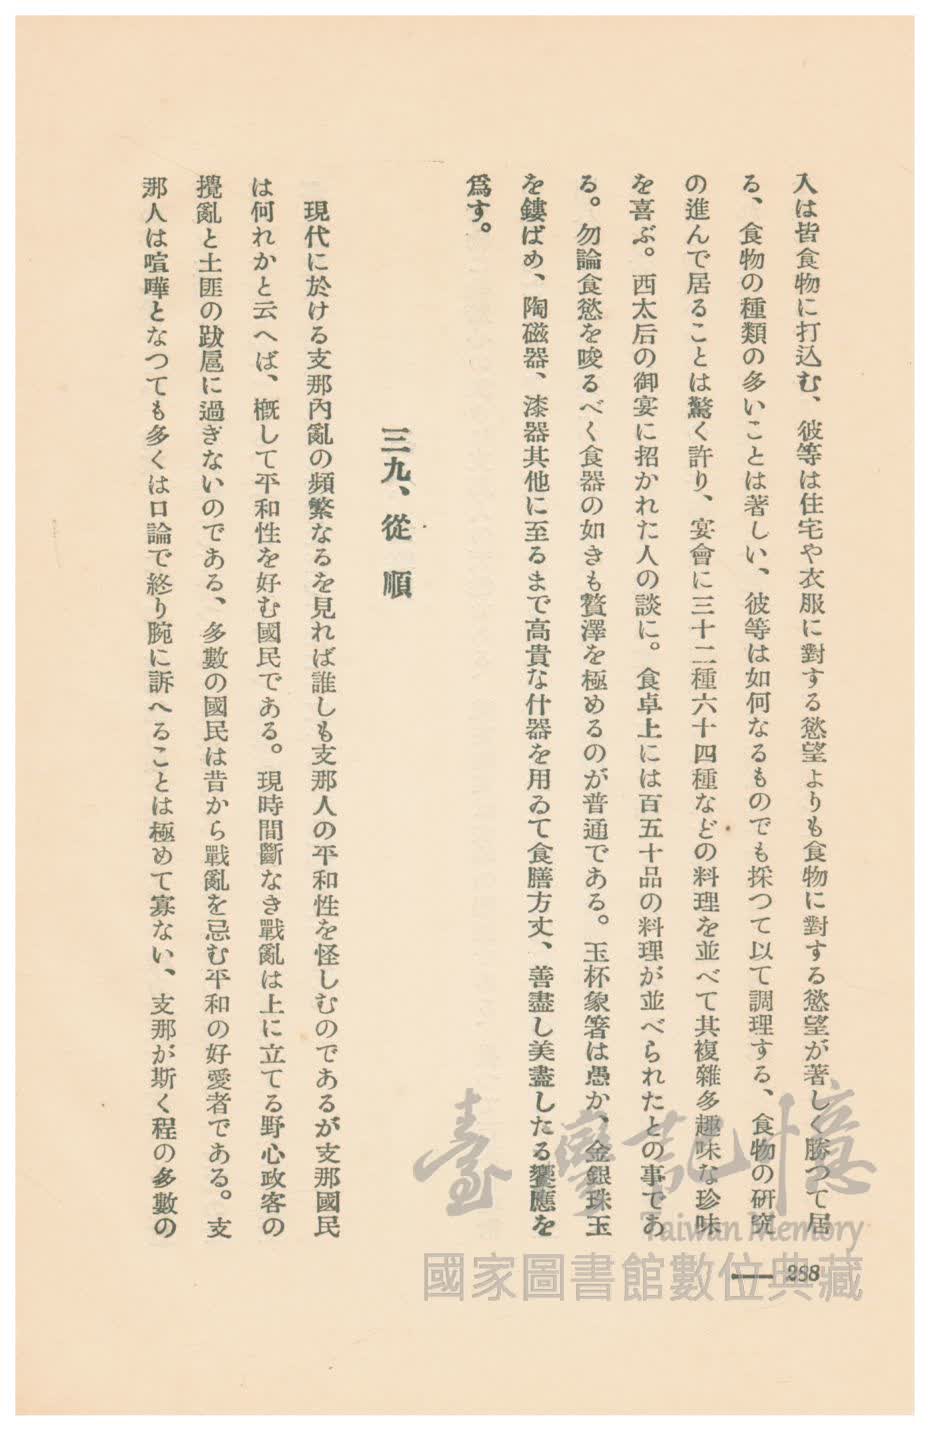 人は皆食物に打込む、彼等は住宅や衣服に對する慾望よりも食物に對する慾望が著しく勝つて居
る、食物の種類の多いことは著しい、彼等は如何なるものでも採つて以て調理する、食物の硏究
の進んで居ることは驚く許り、宴會に三十二種六十四種などの料理を並べて其複雜多趣味な珍味
を喜ぶ。西太后の御宴に招かれた人の談に。食卓上には百五十品の料理が並べられたとの事であ
る。勿論食慾を唆るべく食器の如きも贅澤を極めるのが普通である。玉杯象箸は愚か、金銀珠玉
を鏤ばめ、陶磁器、漆器其他に至るまで高貴な什器を用ゐて食膳方丈、善盡し美盡したる饗應を
爲す。
三九、從順
現代に於ける支那內亂の頻繁なるを見れば誰しも支那人の平和性を怪しむのであるが支那國民
は何れかと云へば、槪して平和性を好む國民である。現時間斷なき戰亂は上に立てる野心政客の
攪亂と土匪の跋扈に過ぎないのである、多數の國民は昔から戰亂を忌む平和の好愛者である。支
那人は喧嘩となつても多くは口論で終り腕に訴へることは極めて寡ない、支那が斯く程の多數の
288
臺灣記憶
Taiwan Memory
國家圖書館數位典藏